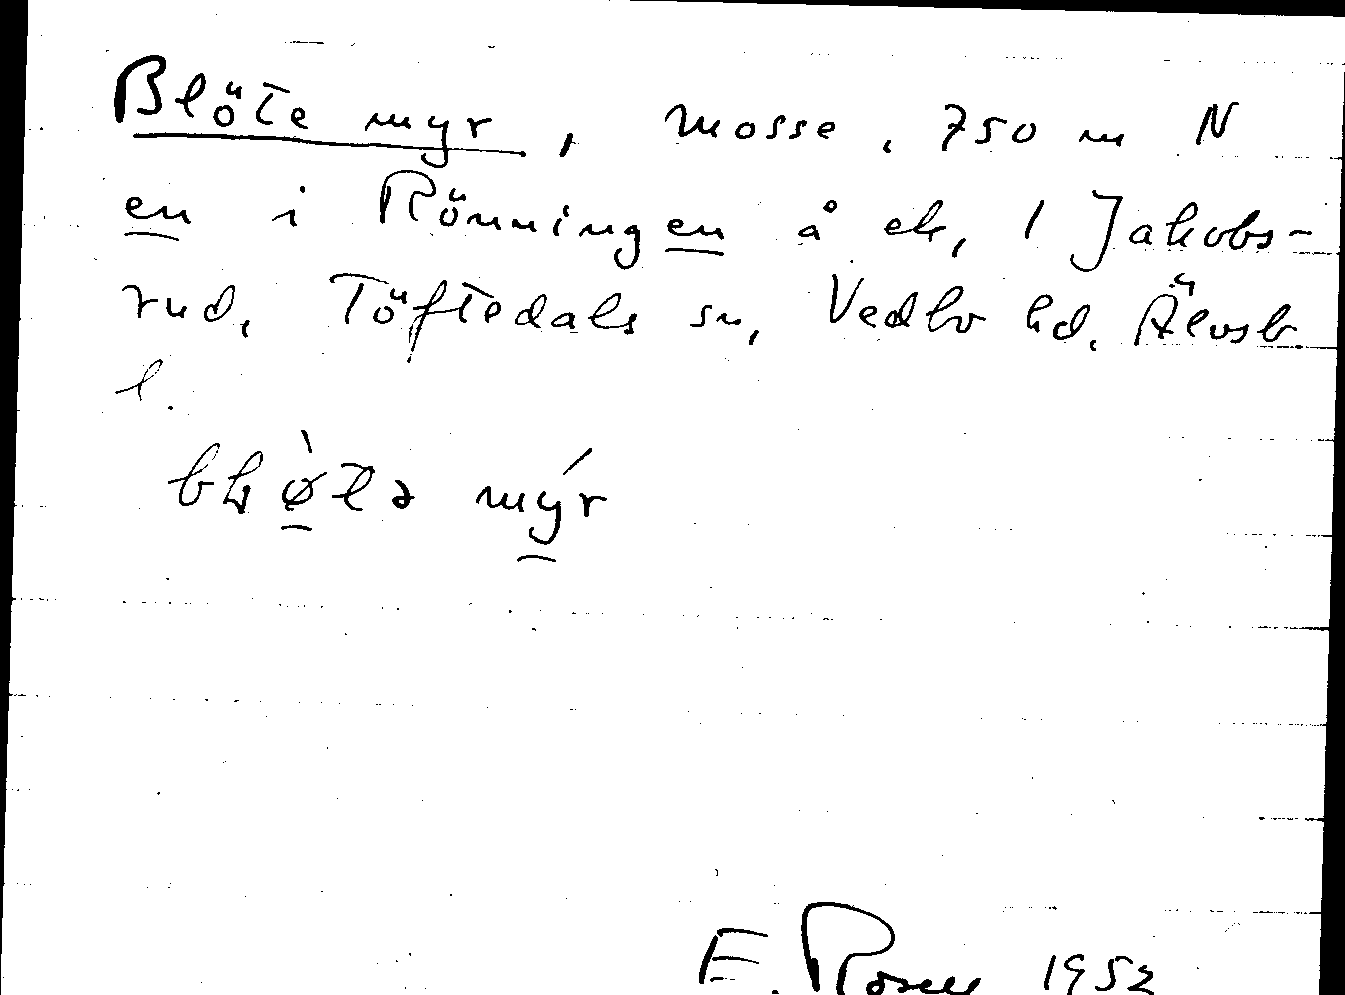 Blöte myr, mosse, 750 m N
en i Rönningen å ek, 1 Jakobs-
rud, Töftedals sn, Vedbo hd. Älvsb.
l.
mýr
E. 1952